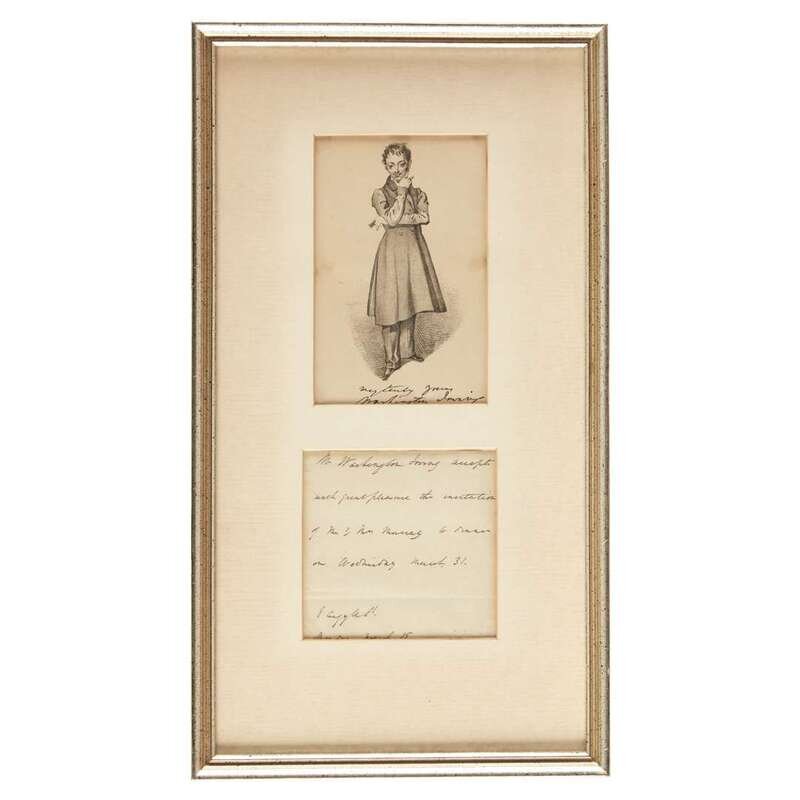 very truly yours
Washington Irving
Mr Washington Irving accepts
with great pleasure the invitation
of Mr & Mrs Murray to dinner
on Wednesday March 31.
8 Argyll St.
March 18